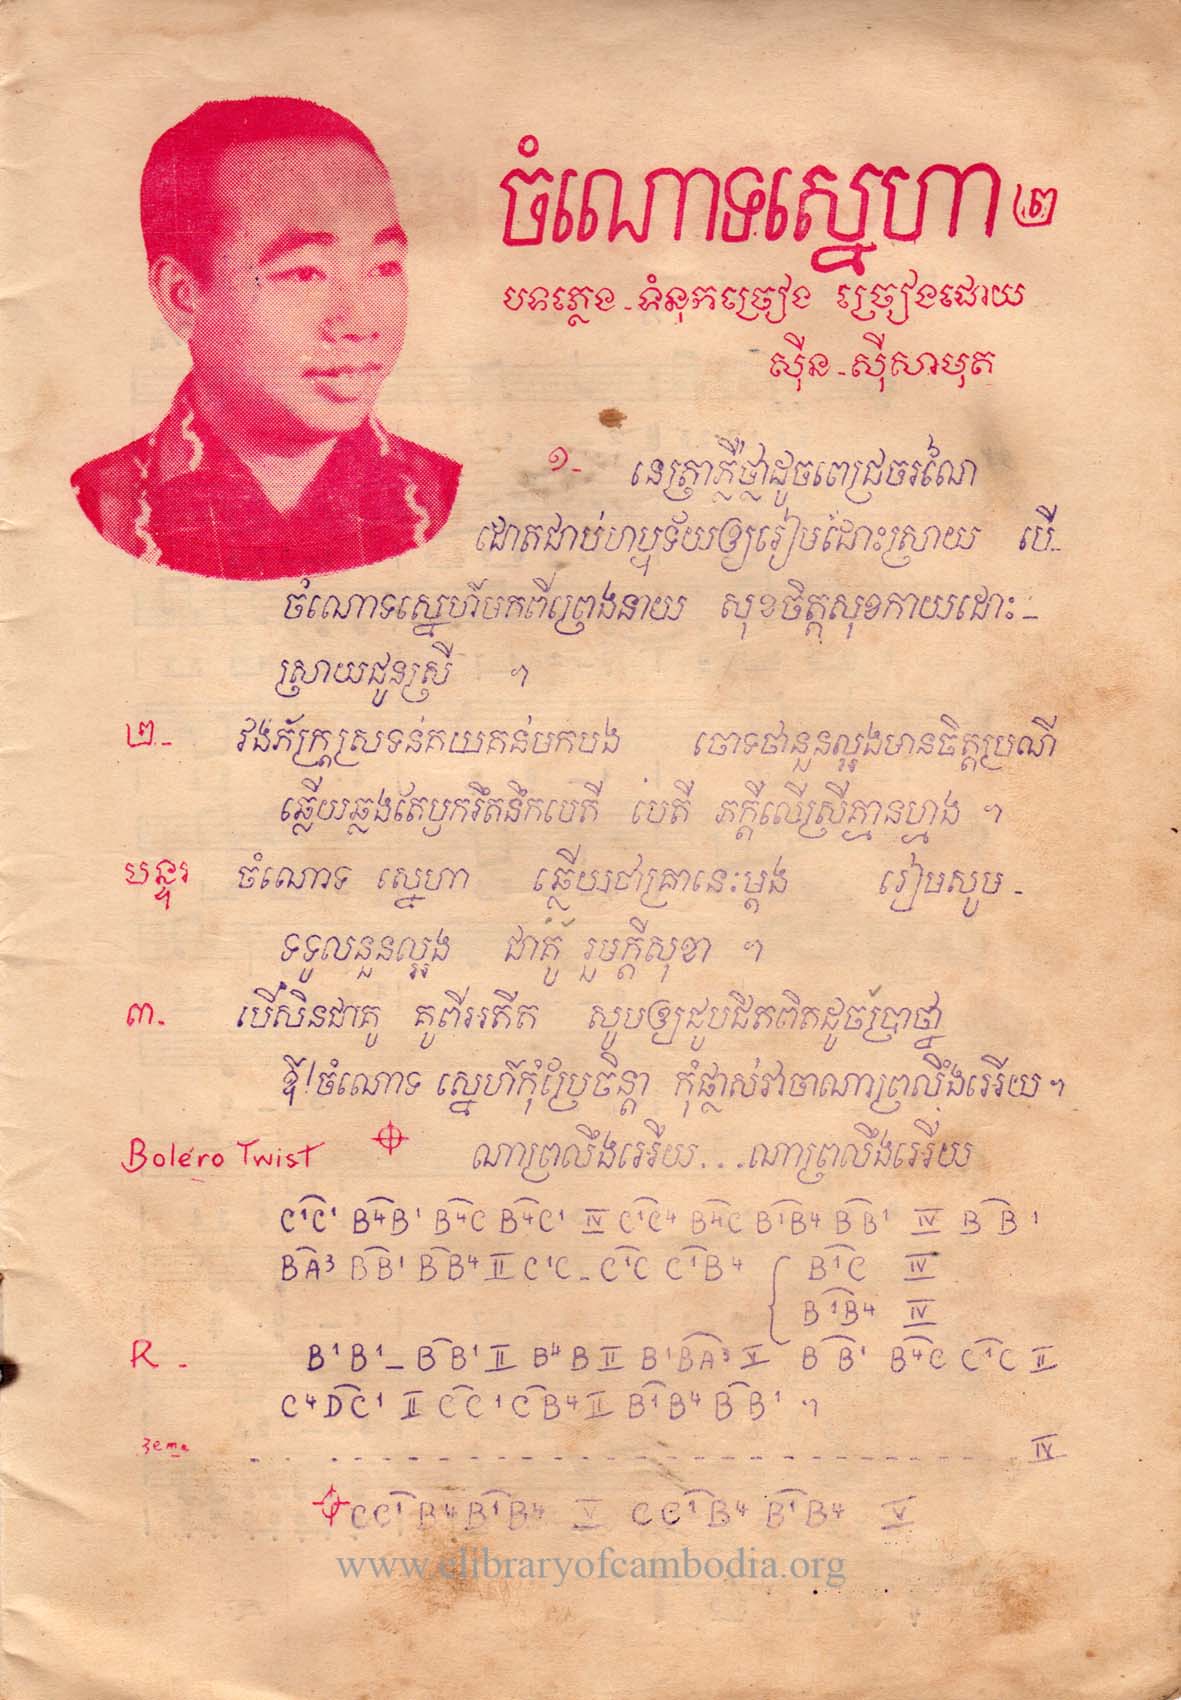 ចំណោទស្នេហា ២
បទភ្លេង - ទំនុកច្រៀង ច្រៀងដោយ
ស៊ីន - ស៊ីសាមុត
១- នេត្រាភ្លឺថ្លាដូចពេជ្រចរណៃ
ដោតជាប់ហឫទ័យឲ្យរៀមដោះស្រាយ បើ-
ចំណោទស្នេហ៍មកពីព្រេងនាយ សុខចិត្តសុខកាយដោះ-
ស្រាយជូនស្រី ។
២- វង់ភ័ក្ត្រស្រទន់គយគន់មកបង ចោទថានួនល្អងមានចិត្តប្រណី
ឆ្លើយឆ្លងតែឫករឹតនឹកបេតី បេតី ភក្តីឈើស្រីគ្មានហ្មង ។
បន្ទរ ចំណោទ ស្នេហា ឆ្លើយថាគ្រានេះម្តង រៀមសូម-
ទទួលនួនល្អង ជាគូ រួមក្តីសុខា ។
៣- បើសិនជាគូ គូពីអតីត សូបឲ្យជួបជិតពិតដូចប្រាថ្នា
ឱ!ចំណោទ ស្នេហ៍កុំប្រែចិន្តា កុំផ្លាស់វាចាណាព្រលឹងអើយ ។
Boléro Twist ណាព្រលឹងអើយ...ណាព្រលឹងអើយ
C¹C¹ B⁴B¹ B⁴C B⁴C¹ IV C¹C⁴ B⁴C B¹B⁴ B B¹ IV B B¹
BA³ BB¹ BB⁴ II C¹C - C¹C C¹B⁴ { B¹C IV
B¹B⁴ IV
R - B¹B¹ - BB¹ II B⁴B II B¹BA³ V B B¹ B⁴C C¹C II
C⁴DC¹ II CC¹CB⁴ II B¹B⁴ BB¹ ។
3eme .......................... IV
CC¹B⁴B¹B⁴ V CC¹B⁴ B¹B⁴ V
www.elibraryofcambodia.org